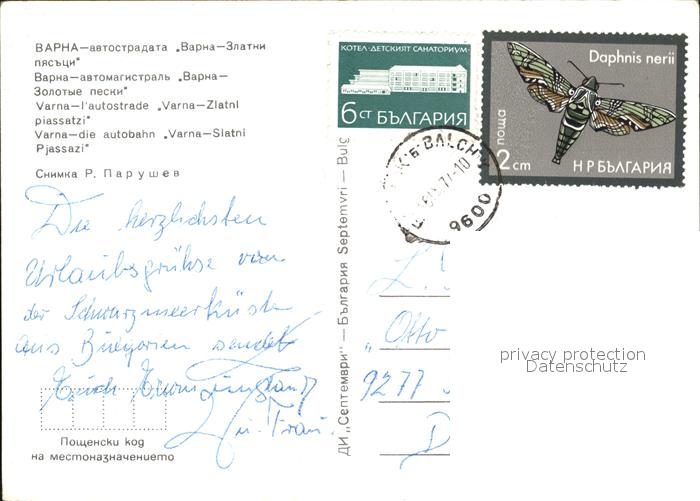 ВАРНА—автострадата „Варна-Златни
пясъци"
Варна—автомагистраль „Варна—
Золотые пески"
Varna—l'autostrade „Varna—Zlatni
piassatzi"
Varna—die autobahn „Varna—Slatni
Pjassazi"
Снимка Р. Парушев
Die herzlichsten
Urlaubsgrüße von
der Schwarzmeerküste
aus Bulgarien sendet
Euch
u. Frau.
Пощенски код
на местоназначението
ДИ „Септември" — България Septemvri — Bulg
КОТЕЛ-ДЕТСКИЯТ САНАТОРИУМ
6 СТ БЪЛГАРИЯ
Daphnis nerii
поща
2 cm НР БЪЛГАРИЯ
BALCH
9600
„Otto
9277
D
privacy protection
Datenschutz